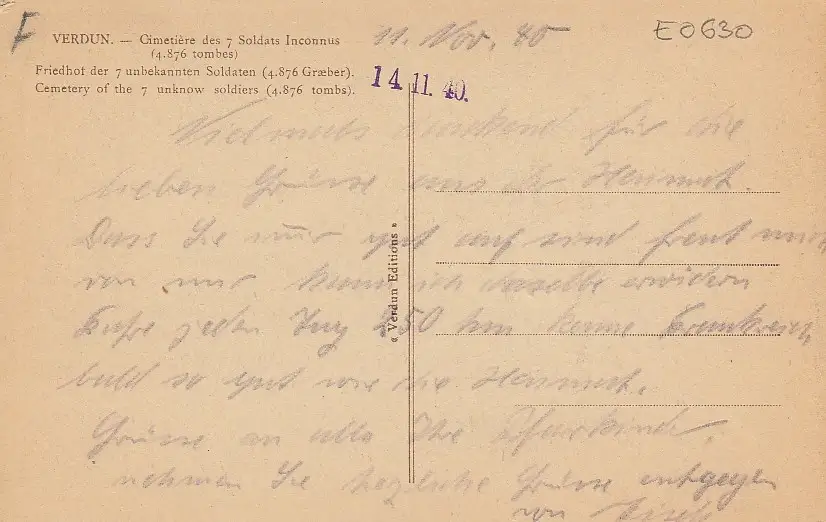 F
E0630
VERDUN. — Cimetière des 7 Soldats Inconnus
(4.876 tombes)
Friedhof der 7 unbekannten Soldaten (4.876 Græber).
Cemetery of the 7 unknow soldiers (4.876 tombs).
11. Nov. 40
14. 11. 40.
« Verdun Editions »
Vielmals dankend für die
lieben Grüsse aus der Heimat.
Dass Sie nur gut auf sind freut mich
von mir kann ich dasselbe erwidern
Fahre jeden Tag 250 km kenne Frankreich
bald so gut wie die Heimat.
Grüsse an alle Ihre Pfarrkinder,
nehmen Sie herzliche Grüsse entgegen
von